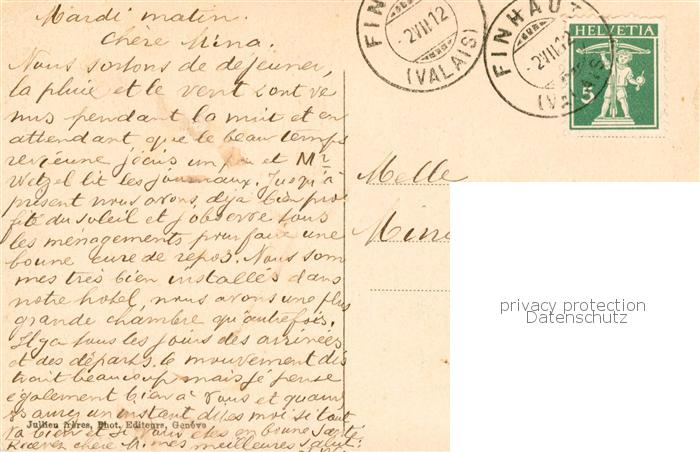 Mardi matin.
Chère Mina.
Nous sortons de dejeuner,
la pluie et le vent sont ve
nus pendant la nuit et en
attendant que le beau temps
revienne j'écris un peu et Mr
Wetzel lit les journaux. Jusqu'à
présent nous avons déjà bien pro
fité du soleil et j'observe tous
les ménagements pour faire une
bonne cure de repos. Nous som
mes très bien installés dans
notre hotel, nous avons une plus
grande chambre qu'autrefois.
Il y a tous les jours des arrivées
et des départs. le mouvement dis
trait beaucoup mais je pense
également bien à vous et quand
vs aurez un instant dites moi si tout
va bien et si vous êtes en bonne santé.
Recevez chère M. mes meilleures salut.
Jullien frères, Phot. Editeurs, Genève
FINHAUT
2 VII 12
(VALAIS)
FINHAUT
-2 VII 12
(VALAIS)
HELVETIA
5
Melle
Mina
privacy protection
Datenschutz